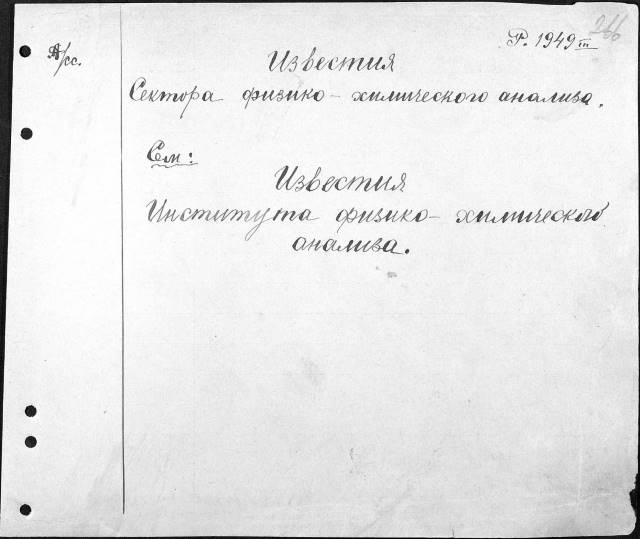 266
Р. 1949 III
А/сс.
Известия
Сектора физико-химического анализа.
См:
Известия
Института физико-химического
анализа.